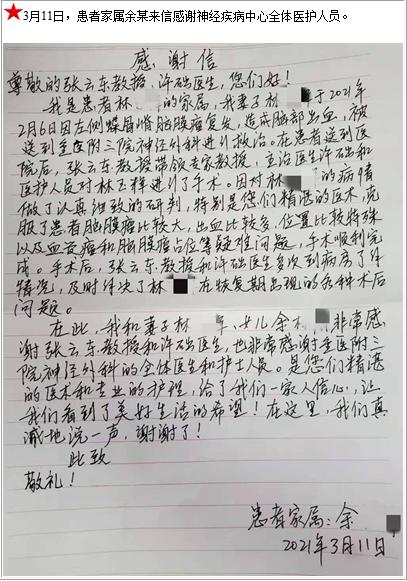 3月11日，患者家属余某来信感谢神经疾病中心全体医护人员。
感谢信
尊敬的张云东教授、许础医生，您们好！
我是患者林 的家属，我妻子林 于2021年
2月6日因左侧蝶骨嵴脑膜瘤复发，造成脑部出血，被
送到重医附三院神经外科进行救治。在患者送到医
院后，张云东教授带领专家教授、主治医生许础和
医护人员对林玉辉进行了手术。因对林 的病情
做了认真细致的研判，特别是您们精湛的医术，克
服了患者脑膜瘤比较大，出血比较多，位置比较特殊
以及血管瘤和脑膜瘤占位等疑难问题，手术顺利完
成。手术后，张云东教授和许础医生多次到病房了解
情况，及时解决了林 在恢复期出现的各种术后
问题。
在此，我和妻子林 、女儿余 非常感
谢张云东教授和许础医生，也非常感谢重医附三
院神经外科的全体医生和护士人员。是您们精湛
的医术和专业的护理，给了我们一家人信心，让
我们看到了美好生活的希望！在这里，我们真
诚地说一声，谢谢了！
此致
敬礼！
患者家属：余
2021年3月11日